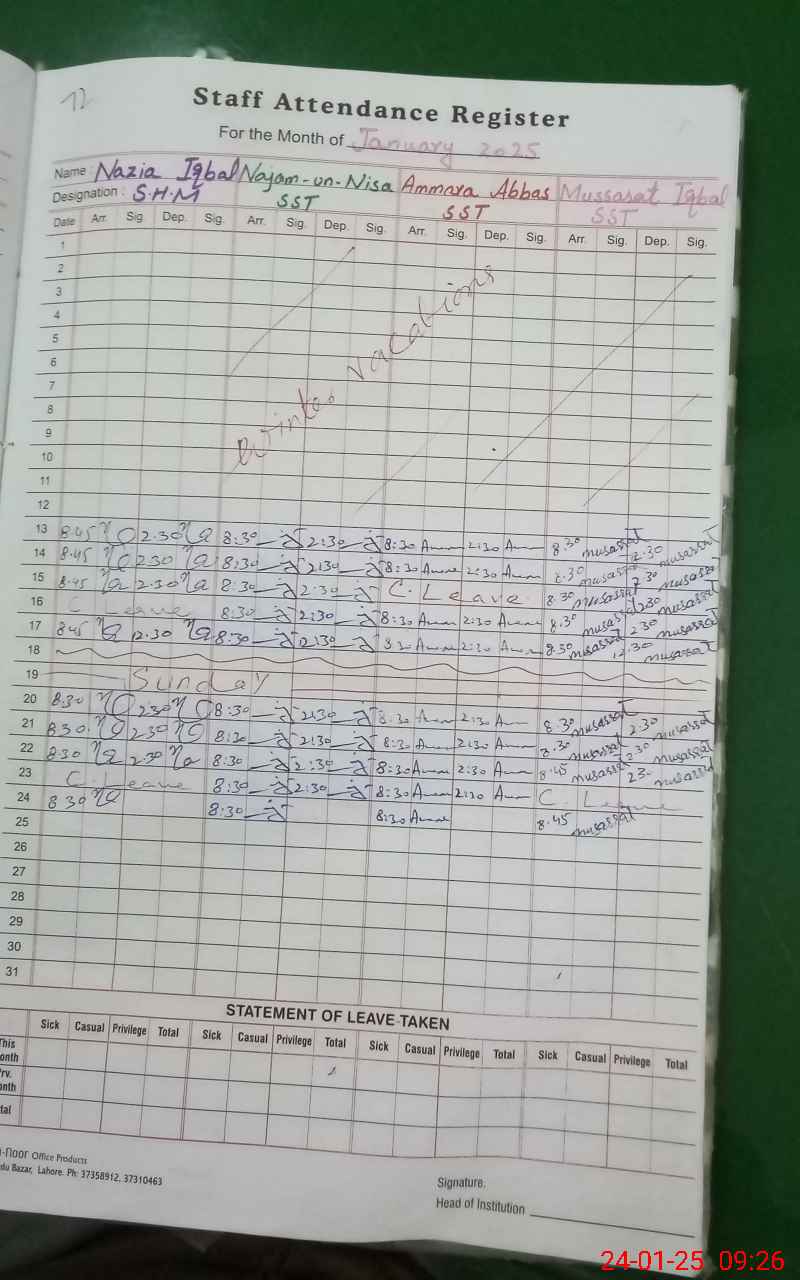 12
Staff Attendance Register
For the Month of January 2025
Name : Nazia Iqbal Najam-un-Nisa Ammara Abbas Mussarat Iqbal
Designation : S.H.M SST SST SST
Date Arr. Sig. Dep. Sig. Arr. Sig. Dep. Sig. Arr. Sig. Dep. Sig. Arr. Sig. Dep. Sig.
1
2
3
4
5
6
7
8
9
10
11
12
Winter Vacations
13 8.45 2.30 8:30 2:30 8:30 2:30 8.30 mussarat 2.30 mussarat
14 8.45 2.30 8:30 2:30 8:30 2:30 8.30 mussarat 2.30 mussarat
15 8.45 2.30 8:30 2:30 C. Leave 8.30 mussarat 2.30 mussarat
16 C. Leave 8:30 2:30 8:30 2:30 8.30 mussarat 2.30 mussarat
17 8.45 12.30 8:30 2:30 8:30 2:30 8.30 mussarat 12.30 mussarat
18
19 Sunday
20 8.30 2.30 8:30 2:30 8:30 2:30 8.30 mussarat 2.30 mussarat
21 8.30 2.30 8:30 2:30 8:30 2:30 8.30 mussarat 2.30 mussarat
22 8.30 2.30 8:30 2:30 8:30 2:30 8.45 mussarat mussarat
23 C. Leave 8:30 2:30 8:30 2:30 C. Leave
24 8.30 8:30 8:30 8.45 mussarat
25
26
27
28
29
30
31
STATEMENT OF LEAVE TAKEN
Sick Casual Privilege Total Sick Casual Privilege Total Sick Casual Privilege Total Sick Casual Privilege Total
This
onth
rv.
onth
tal
-noor Office Products
du Bazar, Lahore. Ph: 37358912, 37310463
Signature.
Head of Institution
24-01-25 09:26